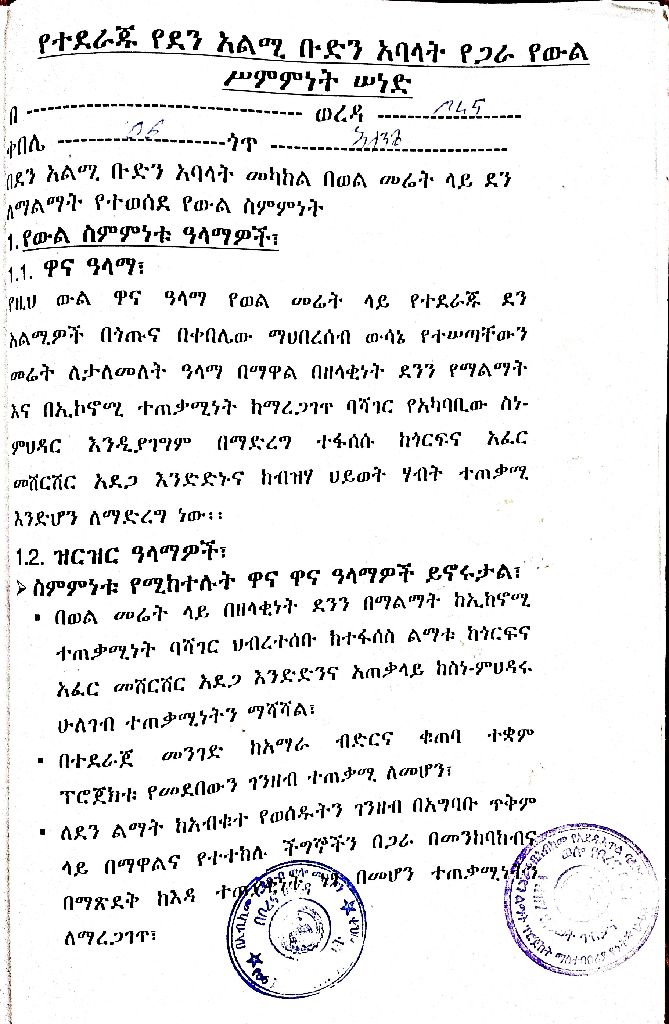 የተደራጁ የደን አልሚ ቡድን አባላት የጋራ የውል
ሥምምነት ሠነድ
በ ------------------------------------ ወረዳ -------------------
ቀበሌ ----- 06 ----- ጎጥ -------------------
በደን አልሚ ቡድን አባላት መካከል በወል መሬት ላይ ደን
ለማልማት የተወሰደ የውል ስምምነት
1. የውል ስምምነቱ ዓላማዎች፣
1.1. ዋና ዓላማ፣
የዚህ ውል ዋና ዓላማ የወል መሬት ላይ የተደራጁ ደን
አልሚዎች በጎጡና በቀበሌው ማህበረሰብ ውሳኔ የተሠጣቸውን
መሬት ለታለመለት ዓላማ በማዋል በዘላቂነት ደንን የማልማት
እና በኢኮኖሚ ተጠቃሚነት ከማረጋገጥ ባሻገር የአካባቢው ስነ-
ምህዳር እንዲያገግም በማድረግ ተፋሰሱ ከጎርፍና አፈር
መሸርሸር አደጋ እንድድኑና ከብዝሃ ህይወት ሃብት ተጠቃሚ
እንድሆን ለማድረግ ነው፡፡
1.2. ዝርዝር ዓላማዎች፣
➢ ስምምነቱ የሚከተሉት ዋና ዋና ዓላማዎች ይኖሩታል፣
▪ በወል መሬት ላይ በዘላቂነት ደንን በማልማት ከኢከኖሚ
ተጠቃሚነት ባሻገር ህብረተሰቡ ከተፋሰስ ልማቱ ከጎርፍና
አፈር መሸርሸር አደጋ እንድድንና አጠቃላይ ከስነ-ምህዳሩ
ሁለገብ ተጠቃሚነትን ማሻሻል፣
▪ በተደራጀ መንገድ ከአማራ ብድርና ቁጠባ ተቋም
ፕሮጀክቱ የመደበውን ገንዘብ ተጠቃሚ ለመሆን፣
▪ ለደን ልማት ከአብቁተ የወሰዱትን ገንዘብ በአግባቡ ጥቅም
ላይ በማዋልና የተተከሉ ችግኞችን በጋራ በመንከባከብና
በማጽደቅ ከእዳ በመሆን ተጠቃሚነትን
ለማረጋገጥ፣